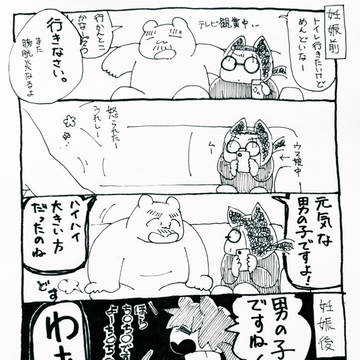 妊娠前
トイレ行きたいけど
めんどいなー
テレビ観賞中‥
行かんとこ
かなー
行きなさい。
また
膀胱炎なるよ
ウス娘中
ムー
怒られたー
うれしー
元気な
男の子ですよ!
ハイハイ
大きい方
だったのね
どす
妊娠後
男の子
ですね
ほら
ち○ち○
よーち○ち○
わあ